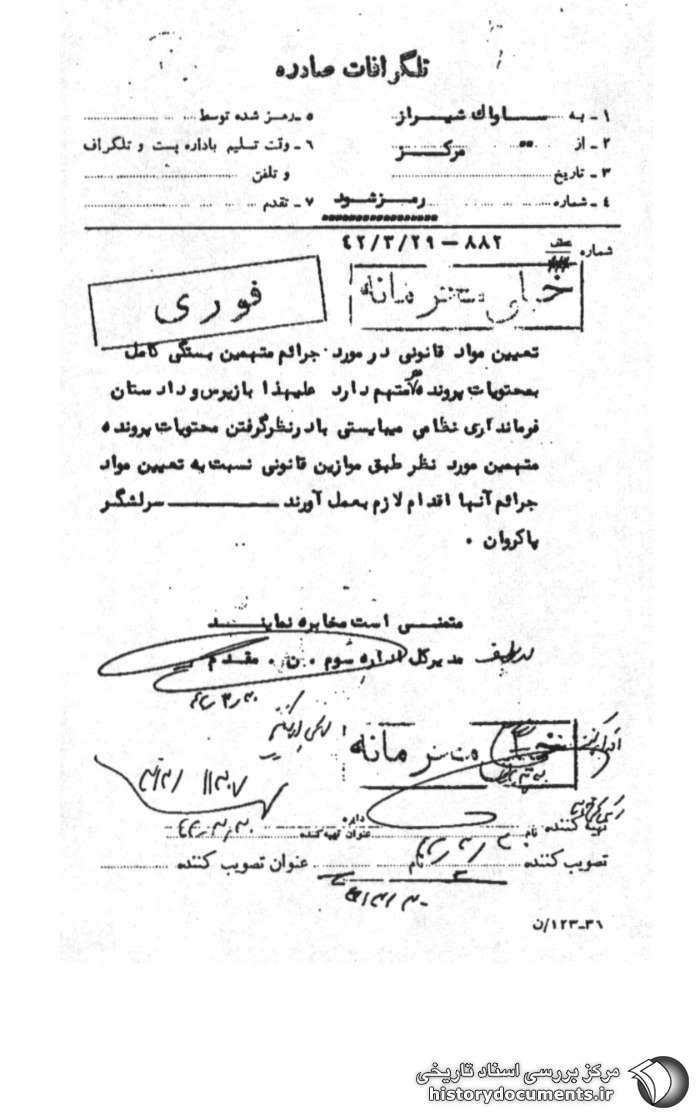 تلگرافات صادره
۱ - به ساواك شیراز
۲ - از مرکز
۳ - تاریخ
٤ - شماره رمز شود
٥ - رمز شده توسط
٦ - وقت تسلیم باداره پست و تلگراف
و تلفن
۷ - تقدم
شماره ۸۸۲ – ٤۲/۳/۲۹
خیلی محرمانه
فوری
تعیین مواد قانونی در مورد جرائم متهمین بستگی کامل
بمحتویات پرونده متهم دارد علیهذا بازپرس و دادستان
فرمانداری نظامی میبایستی بادرنظرگرفتن محتویات پرونده
متهمین مورد نظر طبق موازین قانونی نسبت به تعیین مواد
جرائم آنها اقدام لازم بعمل آورند ــــــ سرلشگر
پاکروان .
متمنی است مخابره نمایند
مدیرکل اداره سوم . ن . مقدم
خیلی محرمانه
تهیه کننده: نام دایره عنوان تهیه کننده
تصویب کننده نام عنوان تصویب کننده
۳۱-۱۲۳/ن
مرکز بررسی اسناد تاریخی
historydocuments.ir